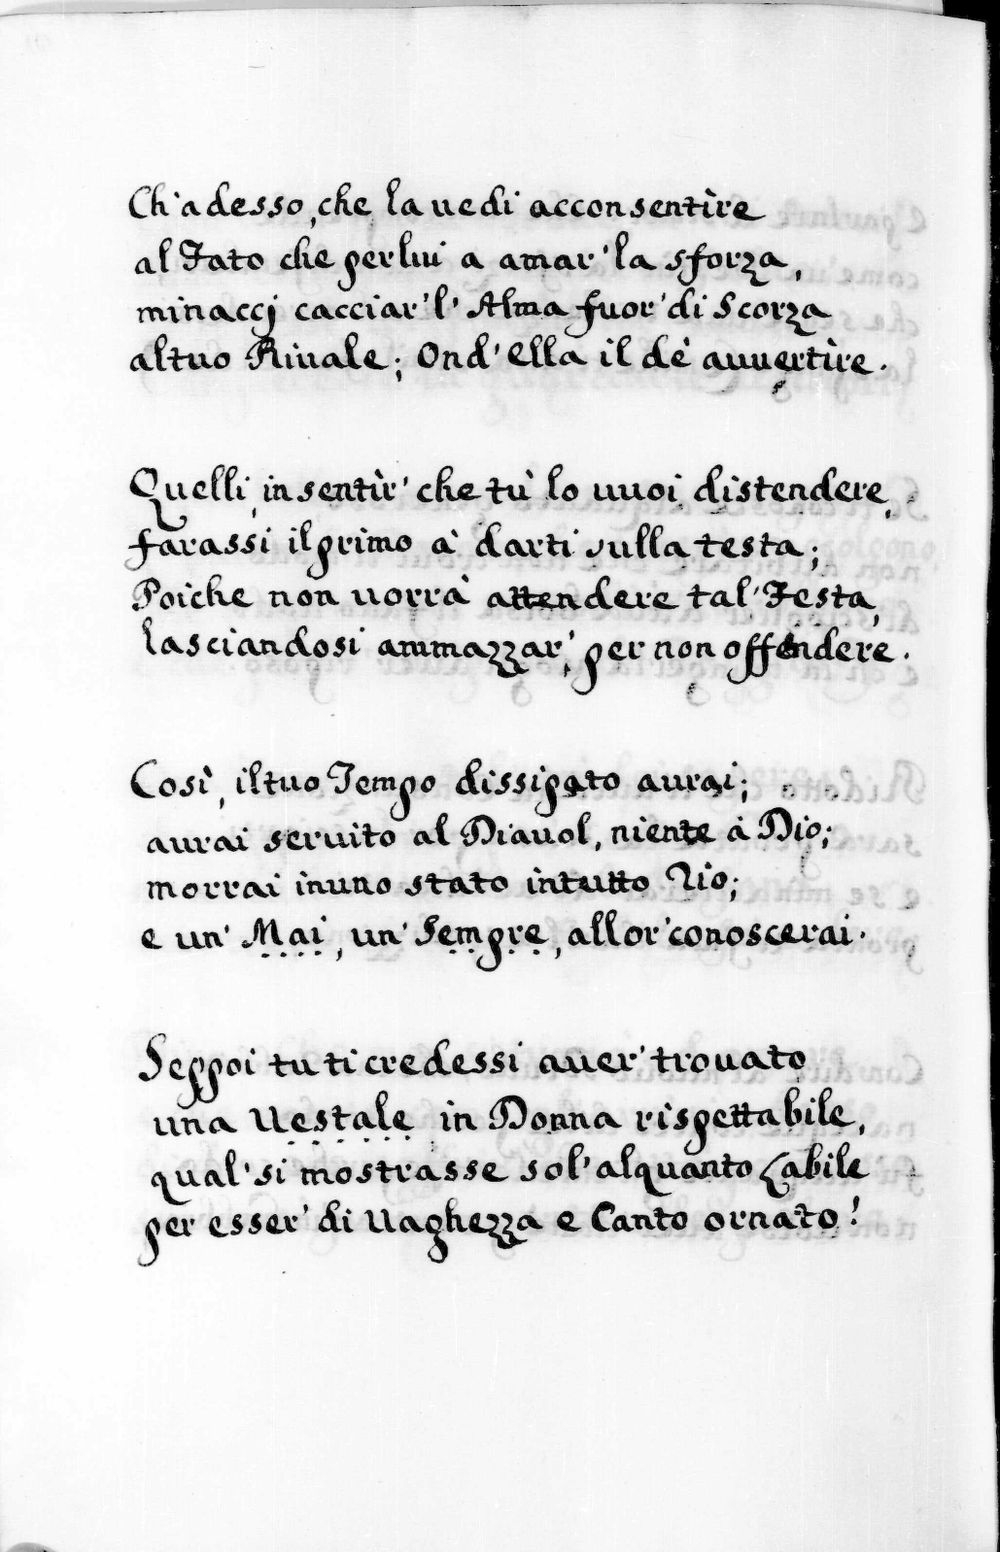 Ch'adesso, che la uedi acconsentìre
al Fato che per lui a amar' la sforza,
minaccj cacciar' l' Alma fuor' di Scorza
al tuo Riuale; Ond' ella il dè auuertìre.
Quelli, in sentìr' che tù lo uuoi distendere,
farassi il primo à darti sulla testa;
Poiche non uorrà attendere tal' Festa,
lasciandosi ammazzar', per non offendere.
Così, il tuo Tempo dissipato aurai;
aurai seruito al Diauol, niente à Dio;
morrai in uno stato in tutto Rio;
e un' Mai, un' Sempre, allor' conoscerai.
Seppoi tu ti credessi auer' trouato
una Uestale in Donna rispettabile,
qual' si mostrasse sol' alquanto Labile
per esser' di Uaghezza e Canto ornato!